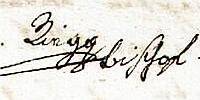 Ringg
bischof